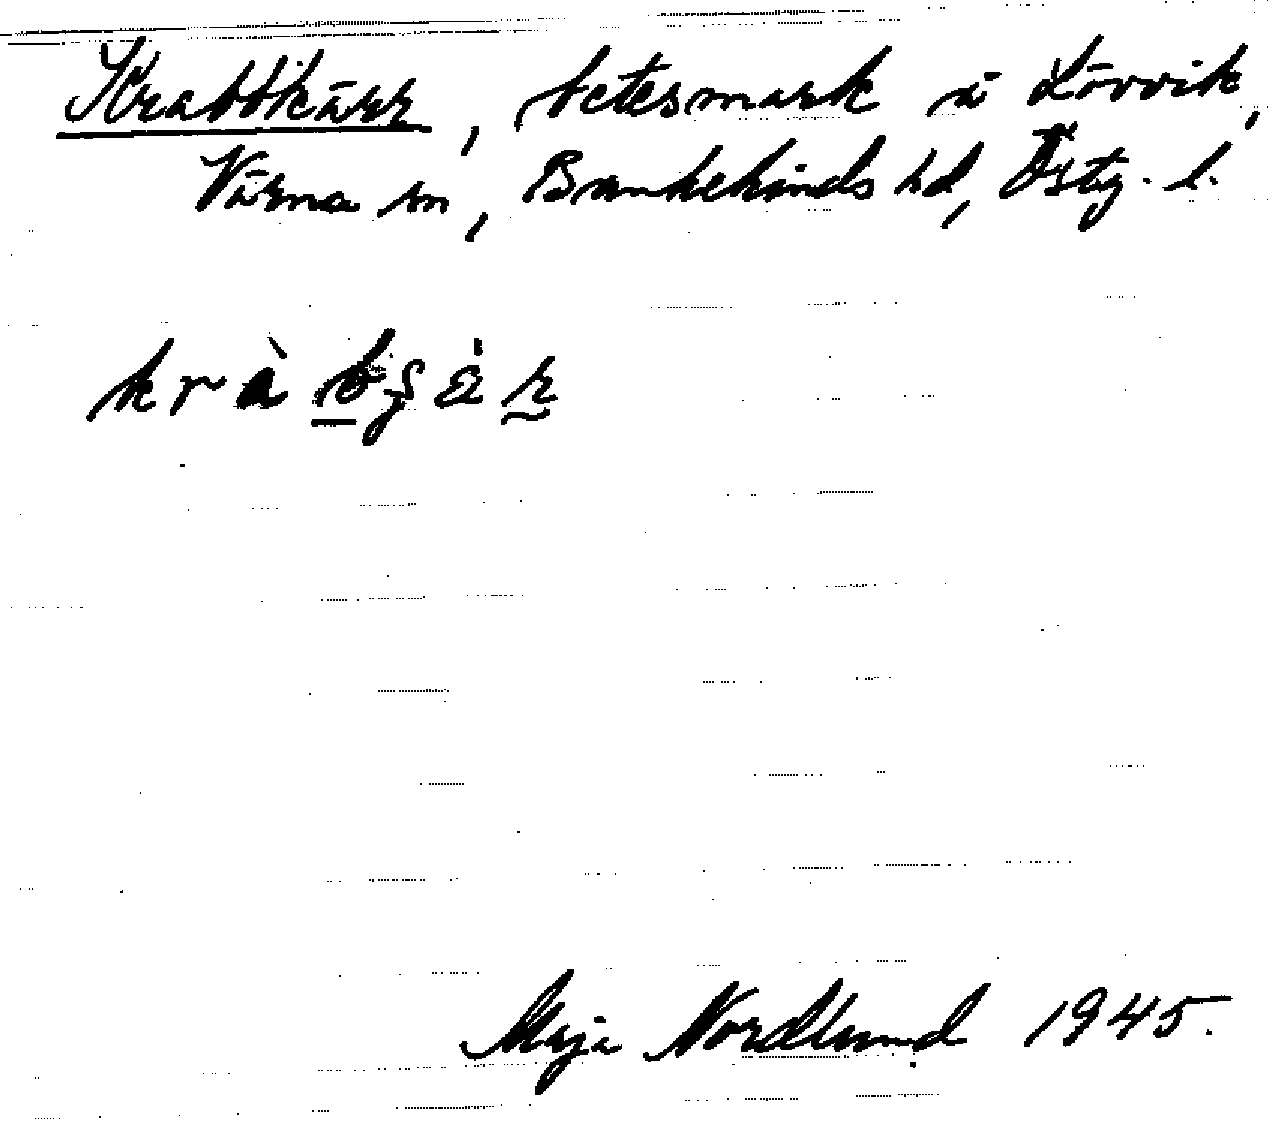 Krabbkärr, betesmark å Lövvik,
Värna sn, Bankekinds hd, Östg. l.
kràbçä̀r
Maja Nordlund 1945.